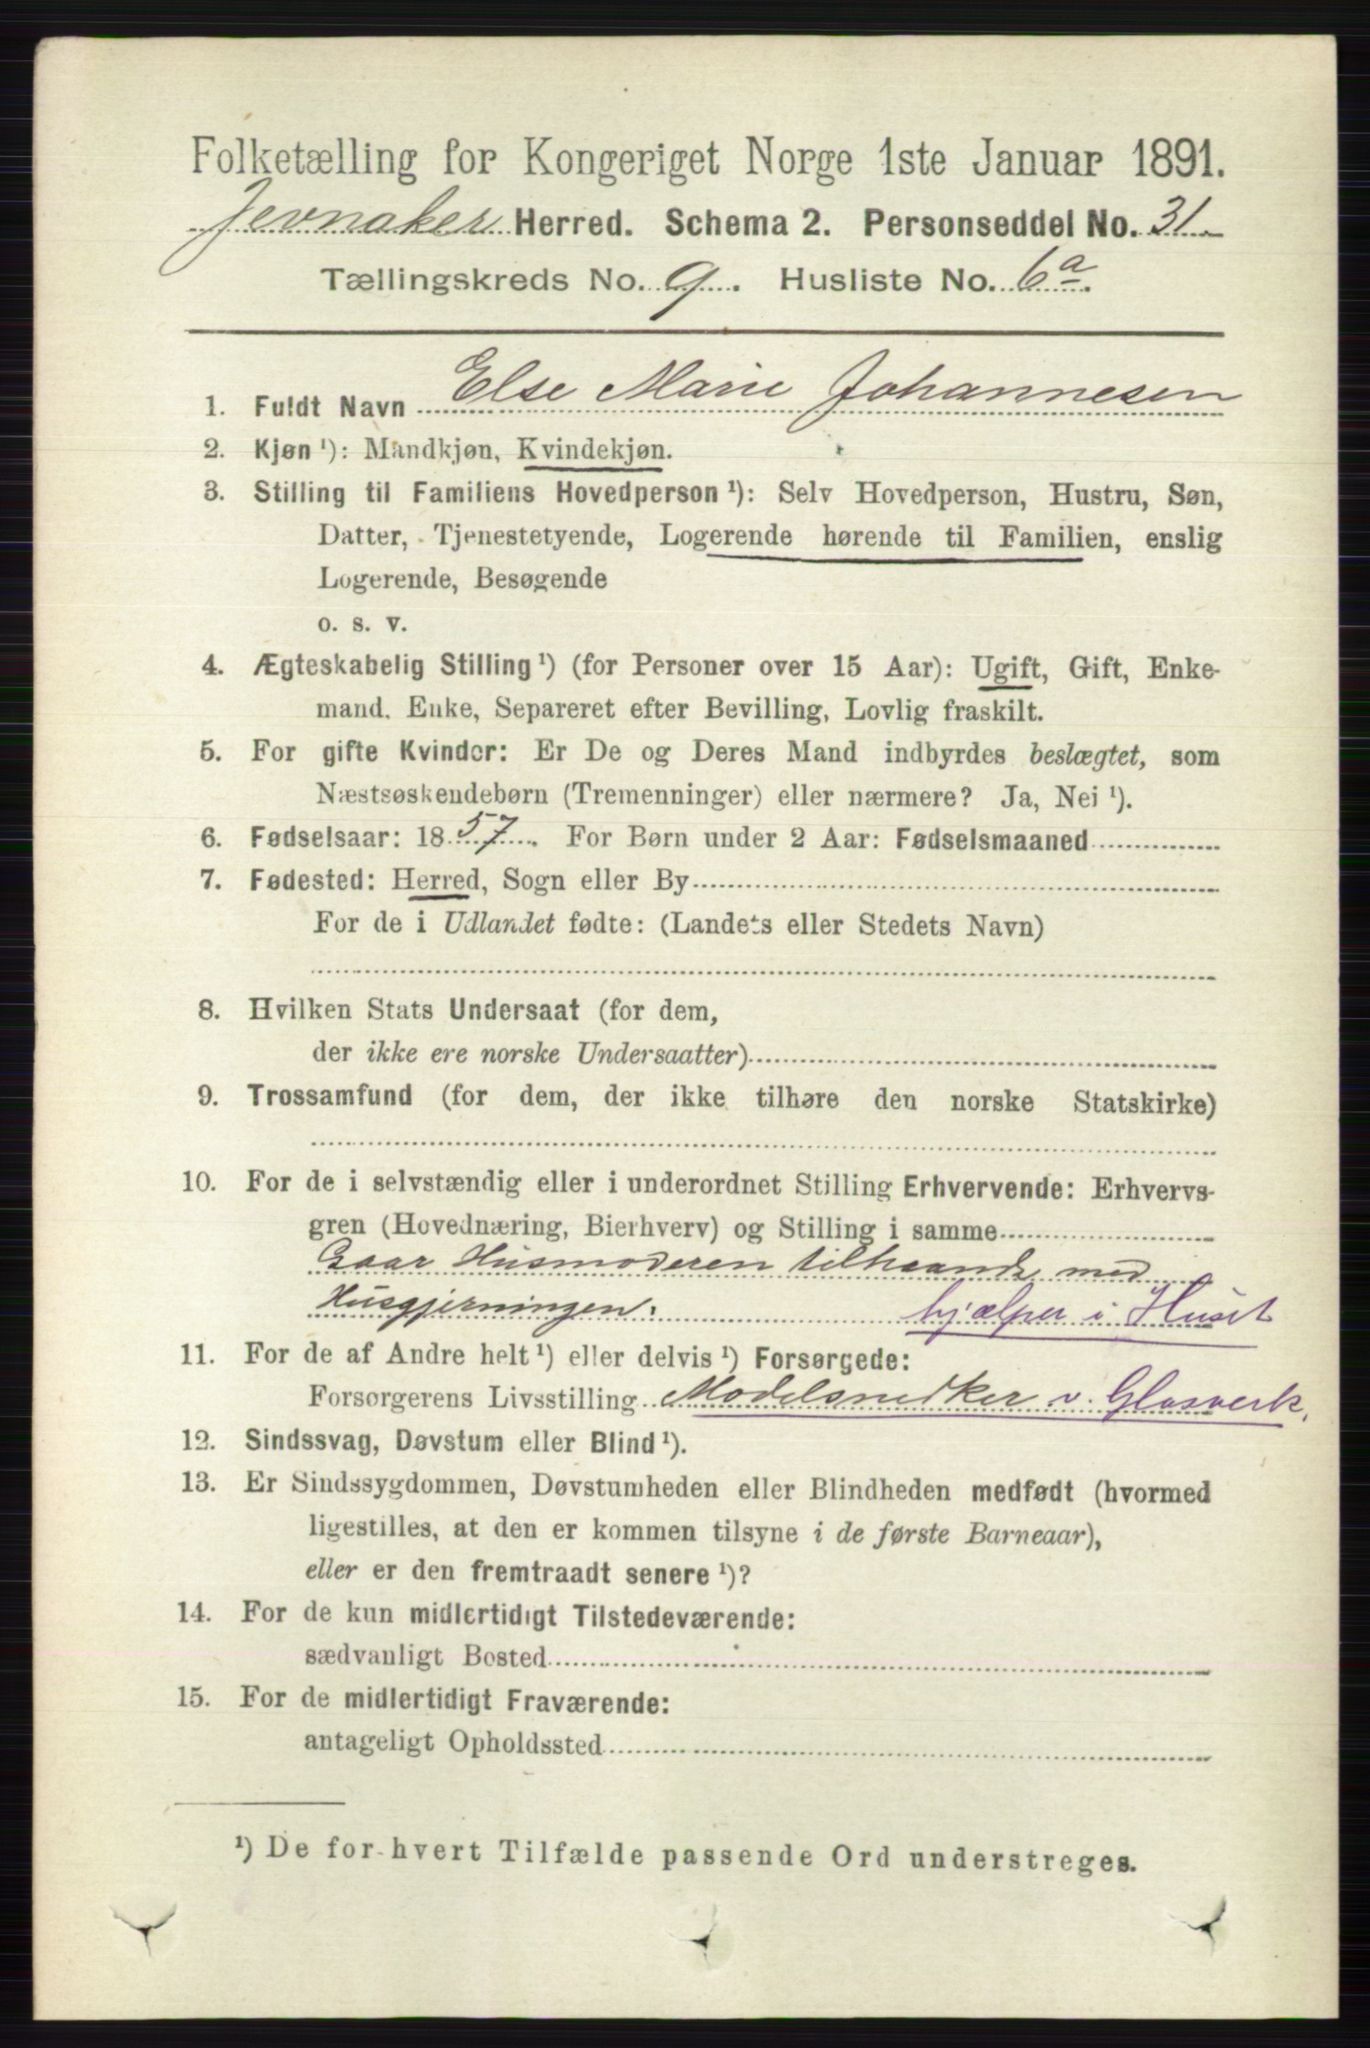 Folketælling for Kongeriget Norge 1ste Januar 1891.
Jevnaker Herred. Schema 2. Personseddel No. 31
Tællingskreds No. 9. Husliste No. 6a.
1. Fuldt Navn Else Marie Johannesen
2. Kjøn ¹): Mandkjøn, Kvindekjøn.
3. Stilling til Familiens Hovedperson ¹): Selv Hovedperson, Hustru, Søn,
Datter, Tjenestetyende, Logerende hørende til Familien, enslig
Logerende, Besøgende
o. s. v.
4. Ægteskabelig Stilling ¹) (for Personer over 15 Aar): Ugift, Gift, Enke-
mand, Enke, Separeret efter Bevilling, Lovlig fraskilt.
5. For gifte Kvinder: Er De og Deres Mand indbyrdes beslægtet, som
Næstsøskendebørn (Tremenninger) eller nærmere? Ja, Nei ¹).
6. Fødselsaar: 1857. For Børn under 2 Aar: Fødselsmaaned
7. Fødested: Herred, Sogn eller By
For de i Udlandet fødte: (Landets eller Stedets Navn)
8. Hvilken Stats Undersaat (for dem,
der ikke ere norske Undersaatter)
9. Trossamfund (for dem, der ikke tilhøre den norske Statskirke)
10. For de i selvstændig eller i underordnet Stilling Erhvervende: Erhvervs-
gren (Hovednæring, Bierhverv) og Stilling i samme
Gaar Husmoderen tilhaande med
Husgjerningen. hjælper i Huset
11. For de af Andre helt ¹) eller delvis ¹) Forsørgede:
Forsørgerens Livsstilling Modelsnedker v. Glasverk.
12. Sindssvag, Døvstum eller Blind ¹).
13. Er Sindssygdommen, Døvstumheden eller Blindheden medfødt (hvormed
ligestilles, at den er kommen tilsyne i de første Barneaar),
eller er den fremtraadt senere ¹)?
14. For de kun midlertidigt Tilstedeværende:
sædvanligt Bosted
15. For de midlertidigt Fraværende:
antageligt Opholdssted
¹) De for hvert Tilfælde passende Ord understreges.